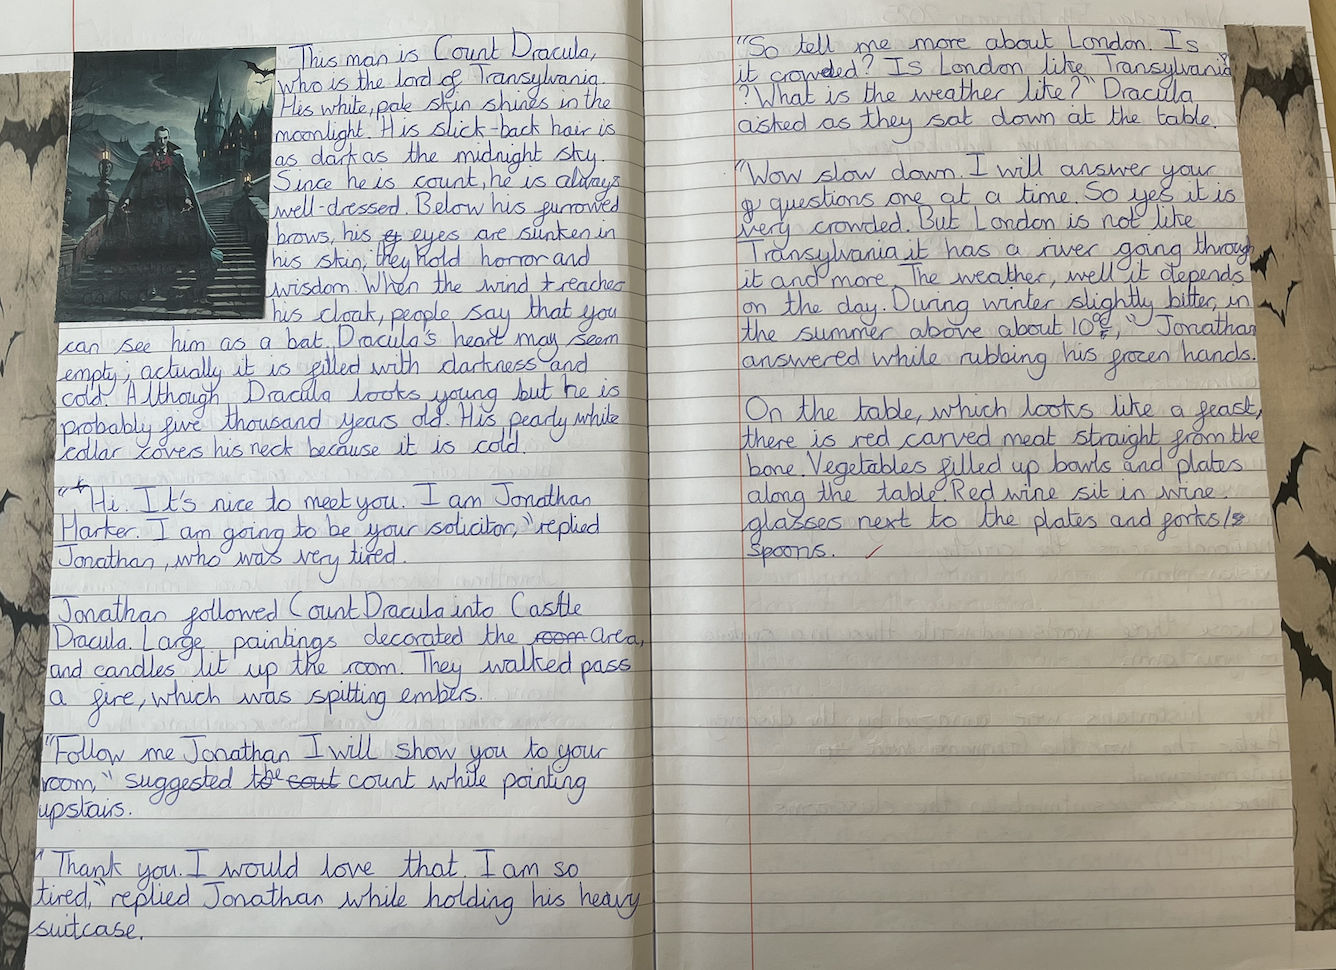 This man is Count Dracula,
who is the lord of Transylvania.
His white, pale skin shines in the
moonlight. His slick-back hair is
as dark as the midnight sky.
Since he is count, he is always
well-dressed. Below his furrowed
brows, his eyes are sunken in
his skin; they hold horror and
wisdom. When the wind reaches
his cloak, people say that you
can see him as a bat. Dracula's heart may seem
empty; actually it is filled with darkness and
cold. Although Dracula looks young but he is
probably five thousand years old. His pearly white
collar covers his neck because it is cold.
"Hi. It's nice to meet you. I am Jonathan
Harker. I am going to be your solicitor," replied
Jonathan, who was very tired.
Jonathan followed Count Dracula into Castle
Dracula. Large paintings decorated the room area,
and candles lit up the room. They walked pass
a fire, which was spitting embers.
"Follow me Jonathan I will show you to your
room," suggested the cout count while pointing
upstairs.
"Thank you. I would love that. I am so
tired," replied Jonathan while holding his heavy
suitcase.
"So tell me more about London. Is
it crowded? Is London like Transylvania
? What is the weather like?" Dracula
asked as they sat down at the table.
"Wow slow down. I will answer your
questions one at a time. So yes it is
very crowded. But London is not like
Transylvania it has a river going through
it and more. The weather, well it depends
on the day. During winter slightly bitter, in
the summer above about 10°c," Jonathan
answered while rubbing his frozen hands.
On the table, which looks like a feast,
there is red carved meat straight from the
bone. Vegetables filled up bowls and plates
along the table. Red wine sit in wine
glasses next to the plates and forks/
spoons.